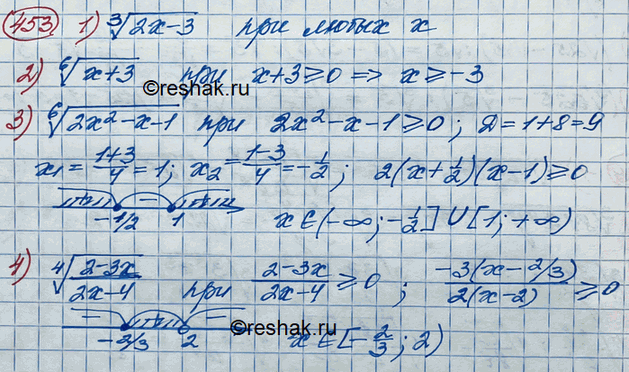 453 1) ∛(2x-3) при любых x
©reshak.ru
2) ⁶√(x+3) при x+3≥0 => x≥-3
3) ⁶√(2x²-x-1) при 2x²-x-1≥0; Д=1+8=9
x₁=(1+3)/4=1; x₂=(1-3)/4=-1/2; 2(x+1/2)(x-1)≥0
+ − +
-1/2 1 x∈(-∞;-1/2]∪[1;+∞)
4) ⁴√((2-3x)/(2x-4)) при (2-3x)/(2x-4)≥0; (-3(x-2/3))/(2(x-2))≥0
− + −
©reshak.ru
-2/3 2 x∈[-2/3;2)